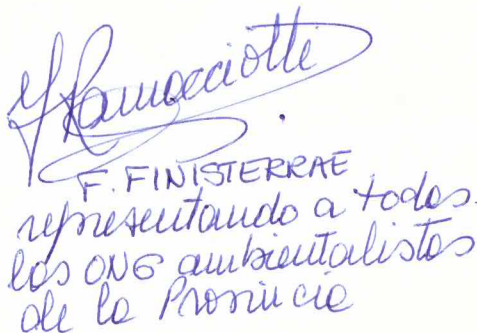 Ramacciotti
F. FINISTERRAE
representando a todas
las ONG ambientalistas
de la Provincia